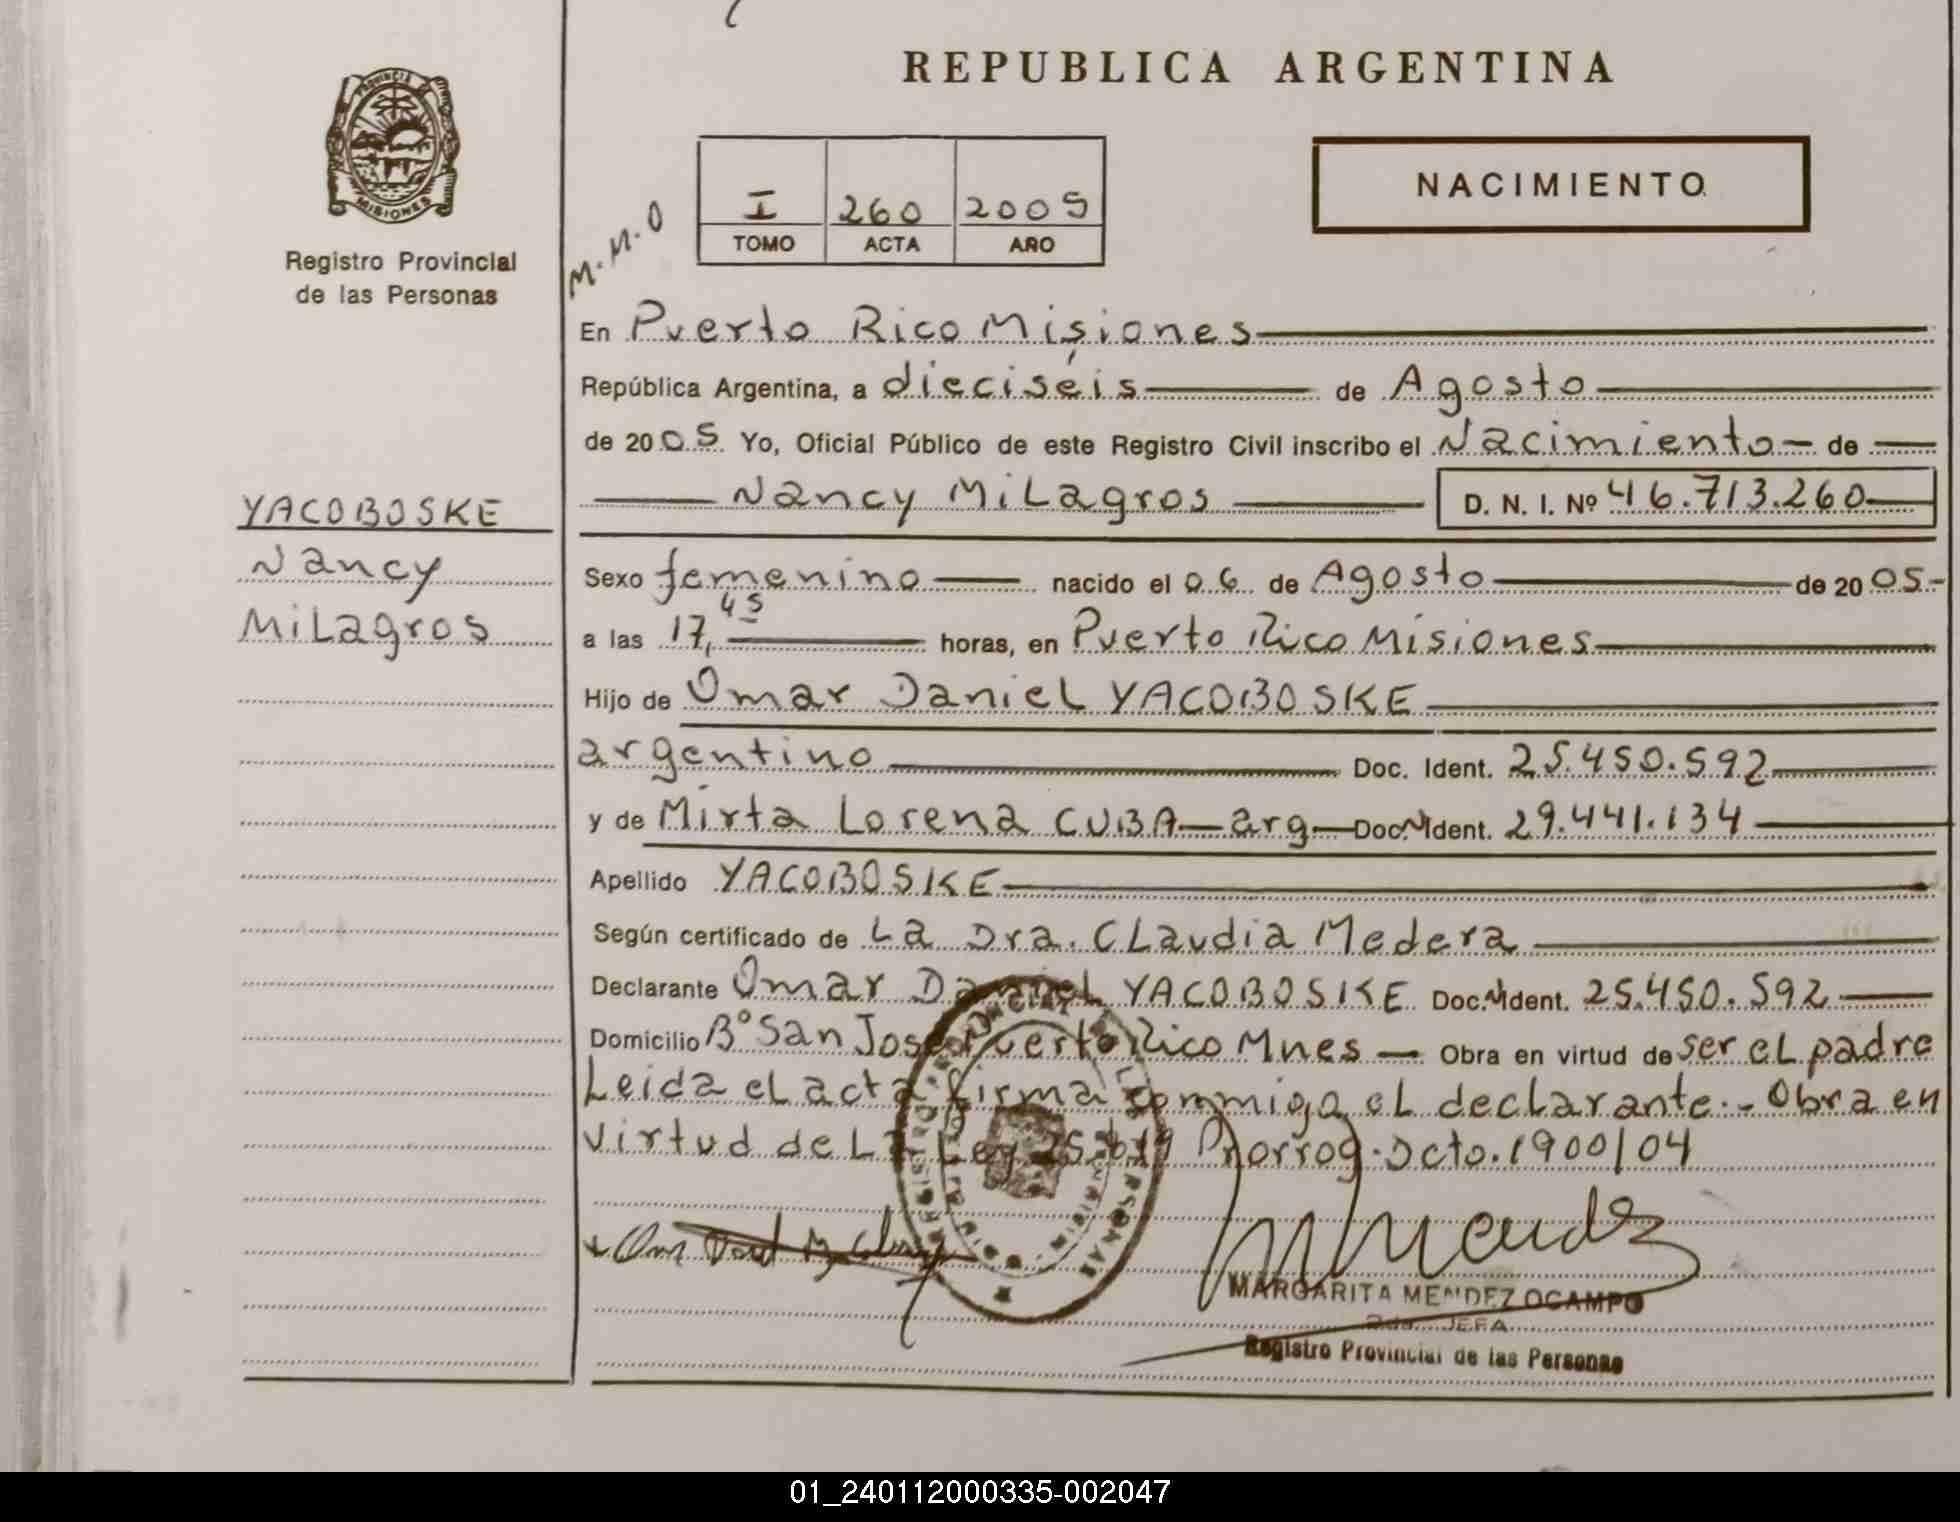 REPUBLICA ARGENTINA
PROVINCIA DE
MISIONES
Registro Provincial
de las Personas
M.M.O
I 260 2005
TOMO ACTA AÑO
NACIMIENTO
En Puerto Rico Misiones
República Argentina, a dieciséis de Agosto
de 2005 Yo, Oficial Público de este Registro Civil inscribo el Nacimiento de
Nancy Milagros D. N. I. Nº 46.713.260
YACOBOSKE
Nancy
Milagros
Sexo femenino nacido el 06 de Agosto de 2005
a las 17,45 horas, en Puerto Rico Misiones
Hijo de Omar Daniel YACOBOSKE
argentino Doc. Ident. 25.450.592
y de Mirta Lorena CUBA arg Doc. Ident. 29.441.134
Apellido YACOBOSKE
Según certificado de La Dra. Claudia Medera
Declarante Omar Daniel YACOBOSKE Doc. Ident. 25.450.592
Domicilio Bº San José Puerto Rico Mnes Obra en virtud de ser el padre
Leida el acta firma conmigo el declarante.- Obra en
virtud de La Ley 25.819 Prorrog. Dcto. 1900/04
MARGARITA MENDEZ OCAMPO
2da. JEFA
Registro Provincial de las Personas
01_240112000335-002047